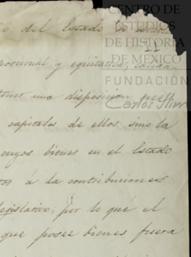 CENTRO DE
ESTUDIOS
DE HISTORIA
DE MÉXICO
FUNDACIÓN
Carlos Slim
del Estado de
proporcional y equitativa,
una disposicion que
capitales de ellos sino la
cuyos bienes en el Estado
á la contribucion
legislativo; por lo qué el
que posee bienes fuera